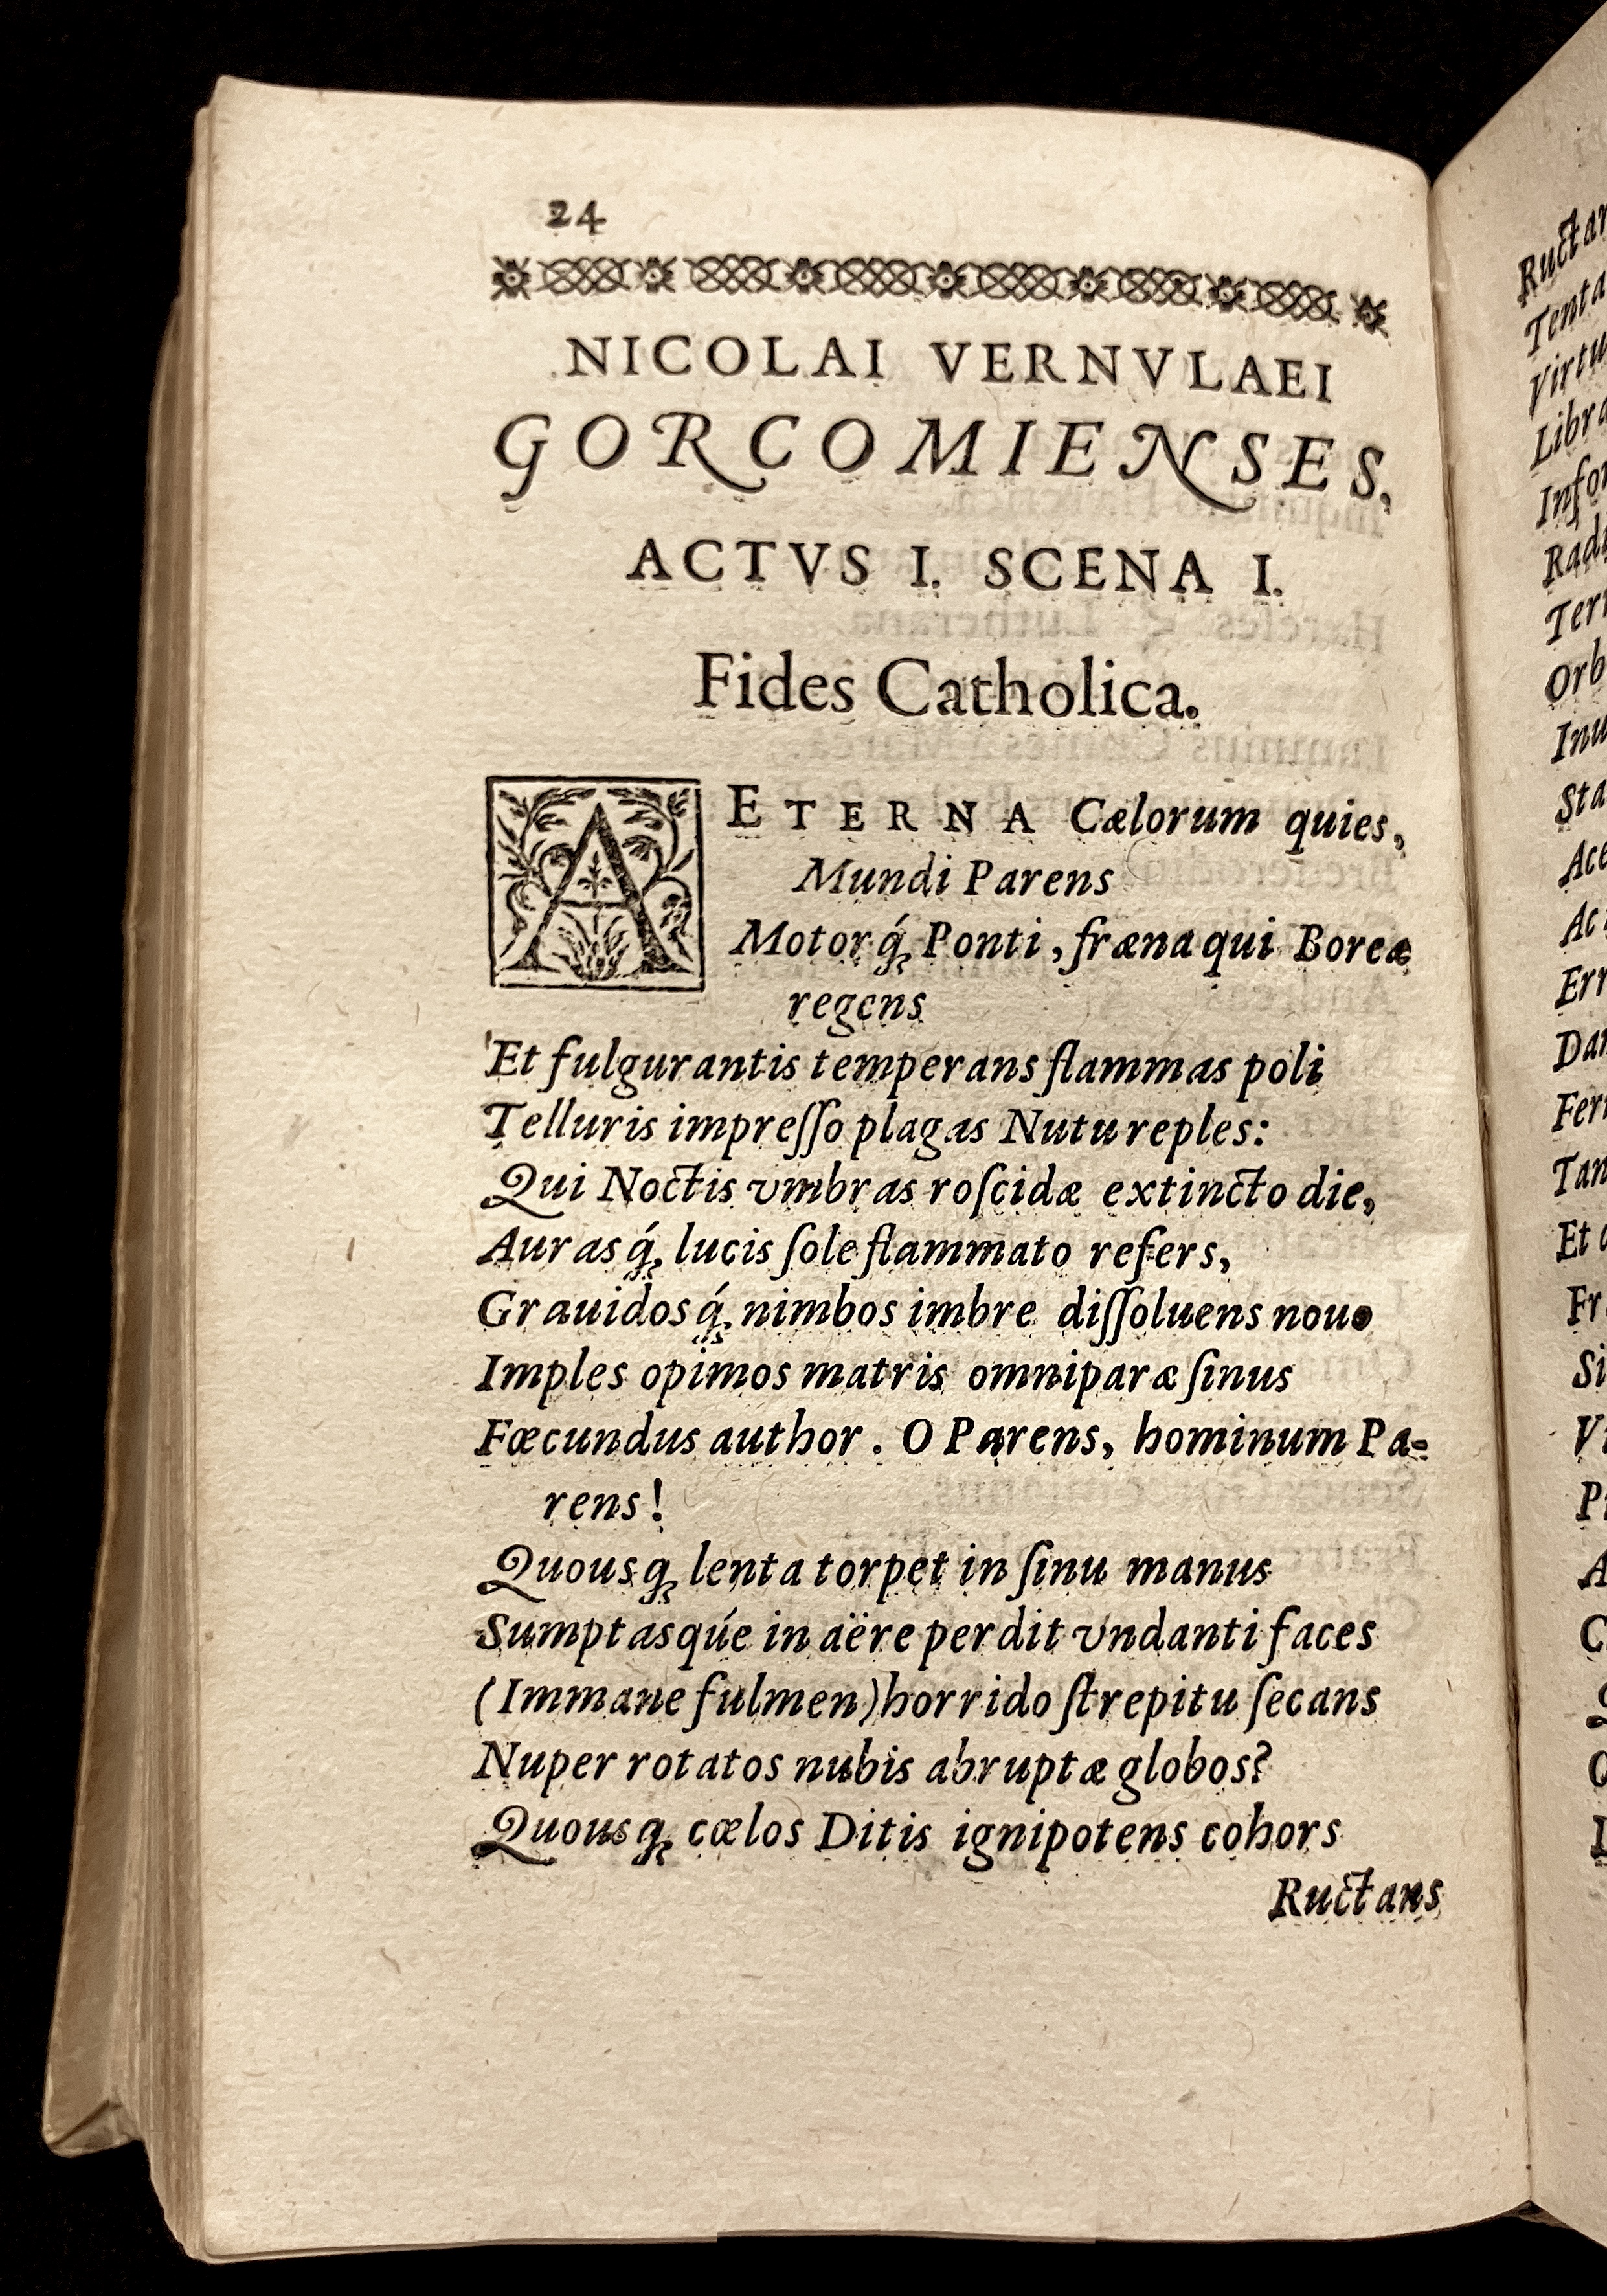 24
NICOLAI VERNVLAEI
GORCOMIENSES,
ACTVS I. SCENA I.
Fides Catholica.
AETERNA Cælorum quies,
Mundi Parens
Motorq́; Ponti, fræna qui Boreæ
regens
Et fulgurantis temperans flammas poli
Telluris impreſſo plagas Nutu reples:
Qui Noctis vmbras roſcidæ extincto die,
Aurasq́; lucis ſole flammato refers,
Grauidosq́; nimbos imbre diſſoluens nouo
Imples opimos matris omniparæ ſinus
Fœcundus author. O Parens, hominum Pa-
rens!
Quousq; lenta torpet in ſinu manus
Sumptasqúe in aëre perdit vndanti faces
(Immane fulmen) horrido ſtrepitu ſecans
Nuper rotatos nubis abruptæ globos?
Quousq; cœlos Ditis ignipotens cohors
Ructans
Tenta
Virtu
Libra
Infor
Orb
Sta
Err
Dar
Tan
Et